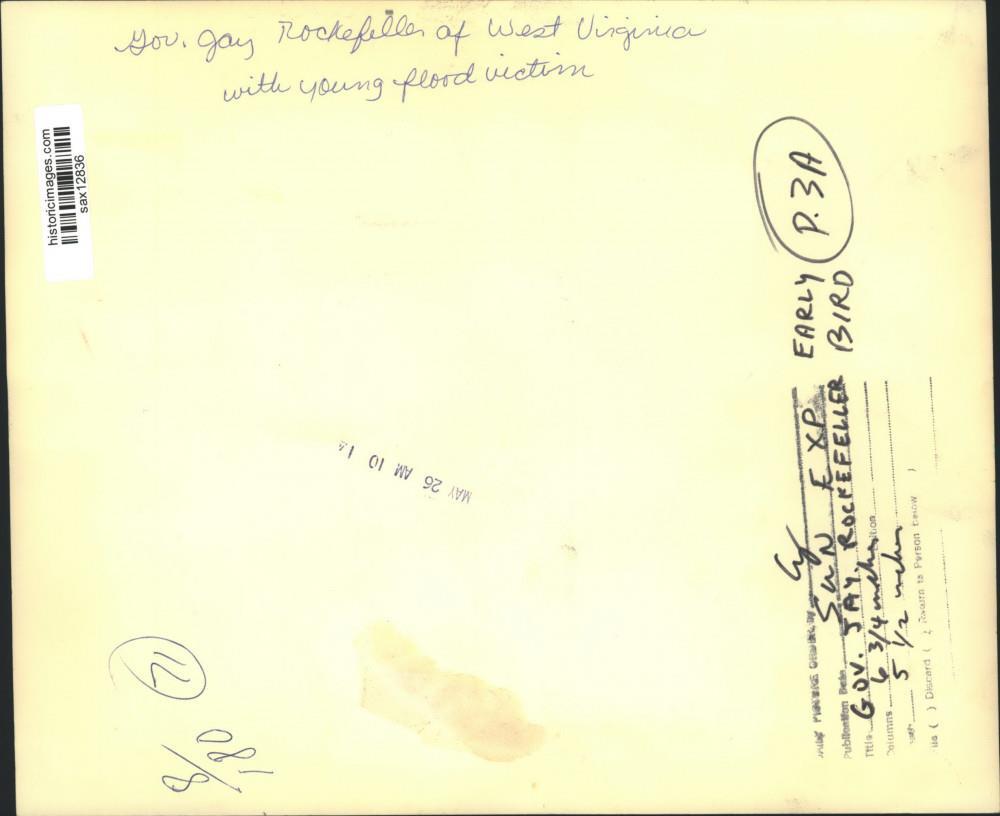 Gov. Jay Rockefeller of West Virginia
with young flood victim
historicimages.com
sax12836
P. 3A
EARLY
BIRD
SUN EXP
Publication Date
Title GOV. JAY ROCKEFELLER
Columns 6 3/4 inches
5 1/2 inches
( ) Discard ( ) Return to Person below )
MAY 26 AM 10
12
8/
'80